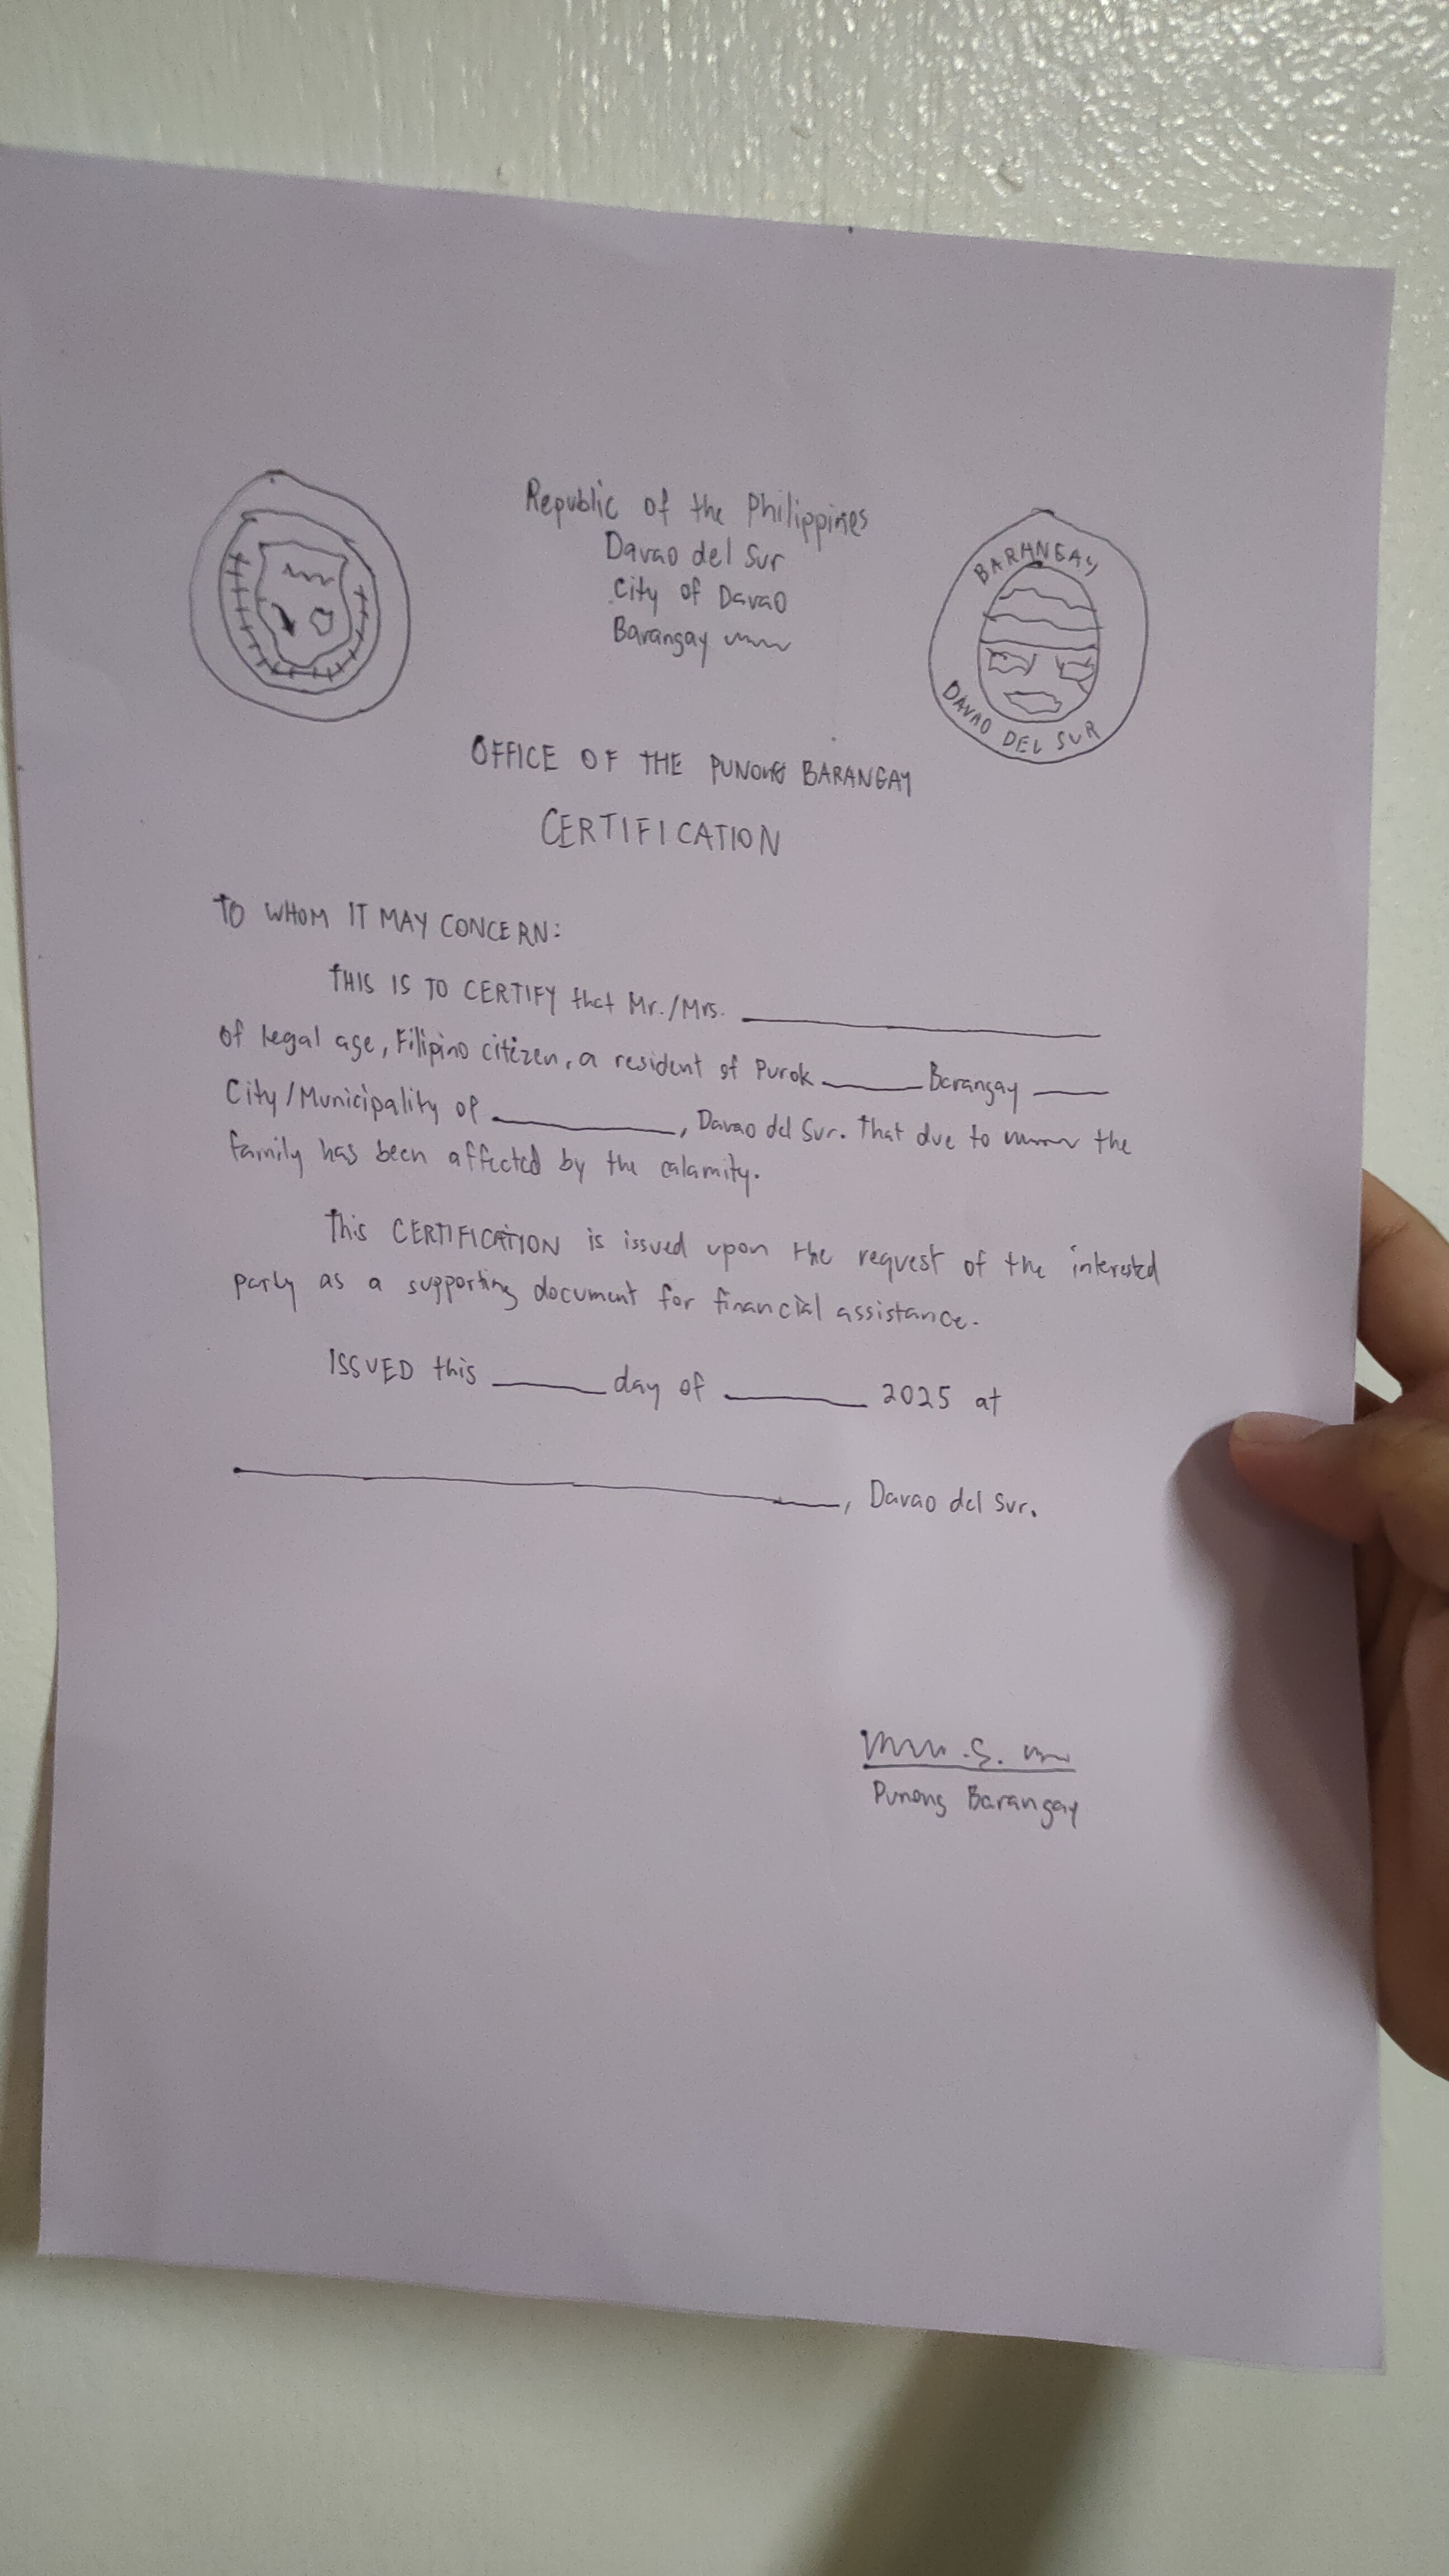 Republic of the Philippines
Davao del Sur
City of Davao
Barangay
BARANGAY
DAVAO DEL SUR
OFFICE OF THE PUNONG BARANGAY
CERTIFICATION
TO WHOM IT MAY CONCERN:
THIS IS TO CERTIFY that Mr./Mrs. ____________
of legal age, Filipino citizen, a resident of Purok ______ Barangay ____
City/Municipality of __________, Davao del Sur. That due to the
family has been affected by the calamity.
This CERTIFICATION is issued upon the request of the interested
party as a supporting document for financial assistance.
ISSUED this ______ day of ________ 2025 at
______________________, Davao del Sur.
S.
Punong Barangay